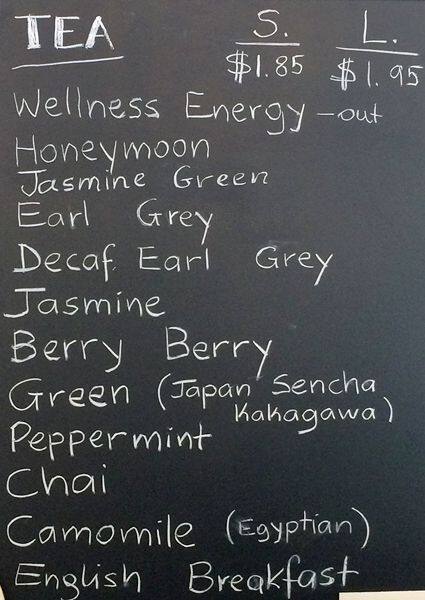 TEA S. L.
$1.85 $1.95
Wellness Energy - out
Honeymoon
Jasmine Green
Earl Grey
Decaf. Earl Grey
Jasmine
Berry Berry
Green (Japan Sencha
Kakagawa)
Peppermint
Chai
Camomile (Egyptian)
English Breakfast